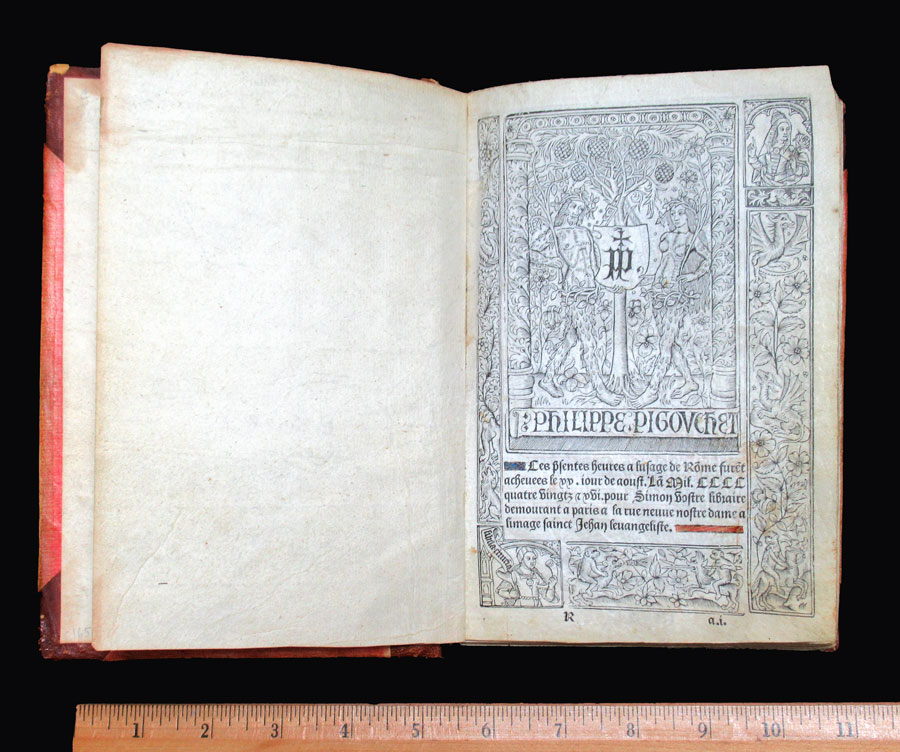 PP
PHILIPPE. PIGOVCHET
Ces p̃sentes heures a lusage de Rõme furẽt
acheuees le xx. iour de aoust. Lã Mil. CCCC
quatre vingtz ⁊ xvi. pour Simon Vostre libraire
demourant a paris a la rue neuue nostre dame a
limage sainct Jehan leuangeliste.
R a.i.
165
1 2 3 4 5 6 7 8 9 10 11